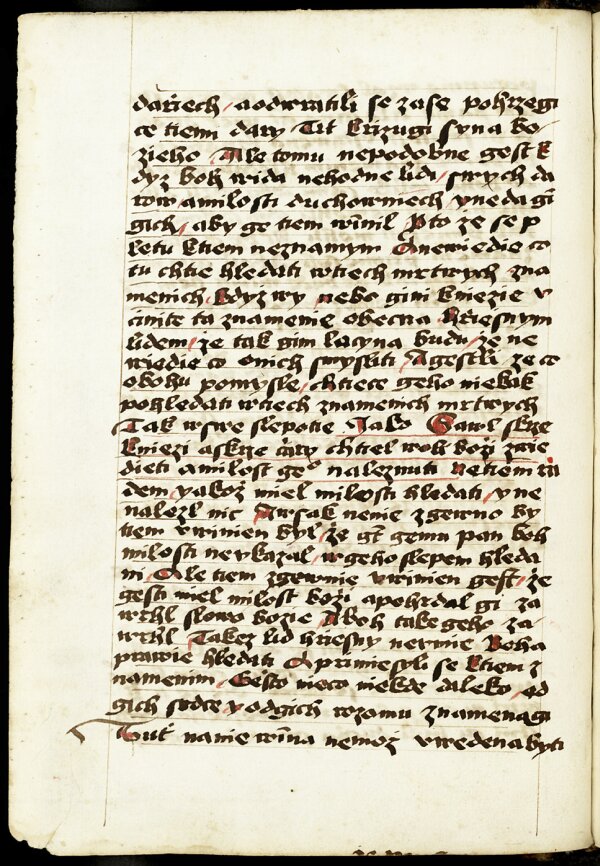 darziech / aodwratili se zase pohrzegi
ce tiem dary Tit krizugi syna bo
zieho / Ale tomu nepodobne gest k
dyz boh wida nehodne lidi / swych da
row amilosti duchowniech / yneda gi
gich / aby ge tiem winil Pto ze se p
letu ktiem neznamym Anewiedie co
tu chtie hledati wtiech mrtwych zna
menich / kdyz wy nebo gini kniezie v
cinite ta znamenie obecna hriesnym
lidem / ze tak gim lacyna budu / ze ne
wiedie co onich smysliti / Agestli ze co
obohu pomysle / chtiece geho niekak
pohledati wtiech znamenich mrtwych
Tak wswe slepotie Jako Sawl skrze
kniezi askrze czary chtiel woli bozi zwie
dieti amilost geº naleznuti netiem rzi
dem / yakoz miel milosti hledati / yne
nalezl nic / Awsak nenie zgewno by
tiem wwinien byl / ze gt gemu pan boh
milosti neykazal / wgeho slepem hleda
ni / Ale tiem zgewnie vwinien gest / ze
gesti miel milost bozi apohrdal gi za
wrhl slowo bozie / A boh take geho za
wrhl / Takez lid hriesny nermie Boha
prawie hledati A primiesyli se ktiem z
namenim / Gesto nieco niekde daleko / od
gich srdce yodgich rozomu znamenagi
Tut nanie wina nemoz vwedena byti